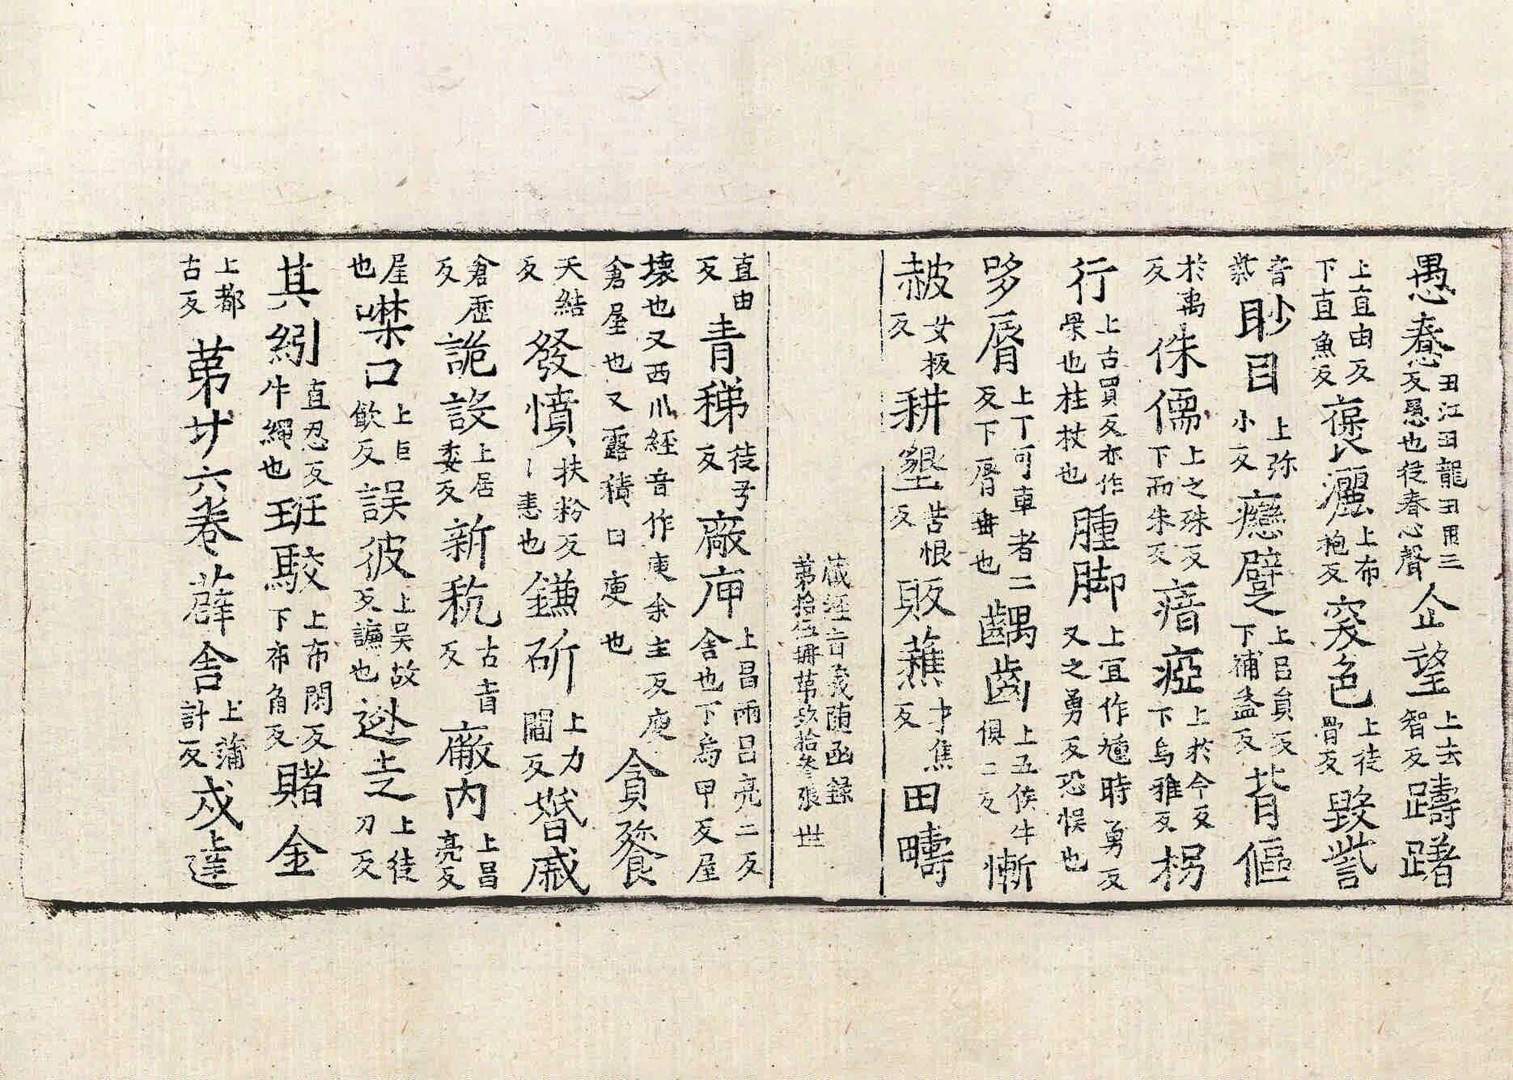 愚憃丑江丑龍丑用三反愚也從春心聲企望上去智反躊躇
上直由反下直魚反褒灑上布袍反突色上徒骨反毀訾
音紫眇目上弥小反癵躄上吕負反下補益反背傴
於禹反侏儒上之殊反下而朱反瘖瘂上於今反下烏雅反枴
行上古買反亦作柺也柱杖也腫脚上宜作尰時勇反又之勇反恐悞也
哆脣上丁可車者二反下脣毋也齵齒上五侯牛俱二反慚
赧女板反耕墾苦恨反販蕉才焦反田疇
藏經音義隨函錄
第拾伍冊第玖拾參張 世
直由反青稊徒兮反廠庘上昌兩吕亮二反舍也下烏甲反屋
壞也又西川經音作庾余主反庾倉屋也又露積曰庾也貪餮
天結反發憤扶粉反〻恚也鎌斫上力閻反婚戚
倉歷反詭詖上居委反新秔古盲反廠内上昌亮反
屋也噤口上巨飲反誤彼上吴故反謬也逃走上徒刀反
其紖直忍反牛繩也班駮上布閑反下布角反賭金
上都古反第廿六卷薜舍上蒲計反戍達